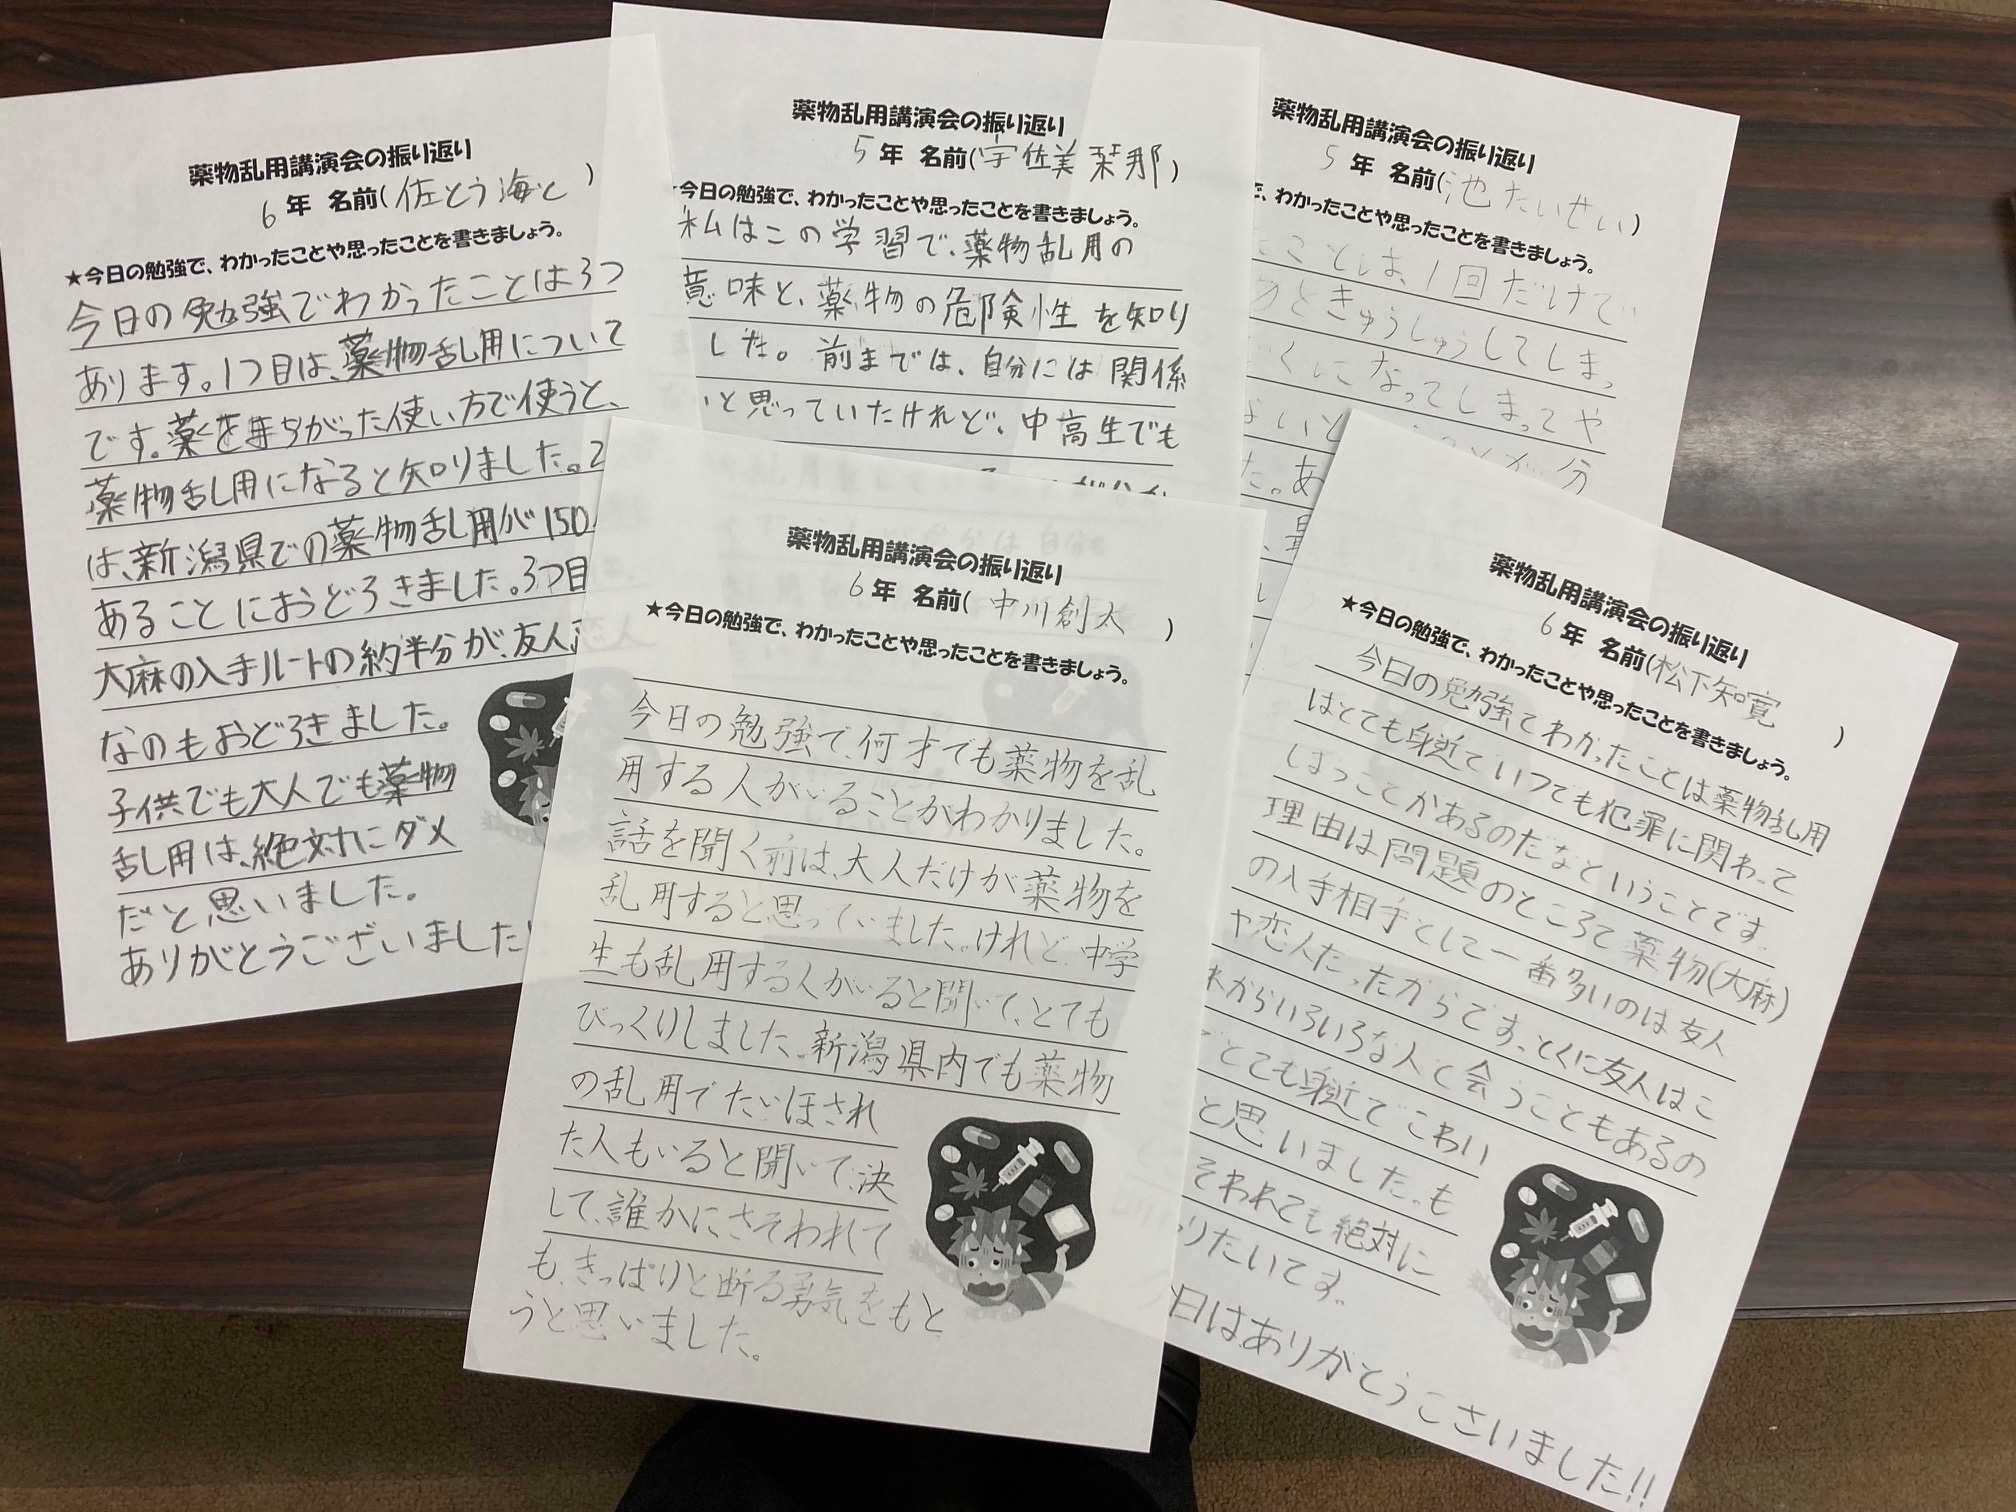 薬物乱用講演会の振り返り
6年 名前(佐とう海と)
★今日の勉強で、わかったことや思ったことを書きましょう。
今日の勉強でわかったことは3つ
あります。1つ目は、薬物乱用について
です。薬をまちがった使い方で使うと、
薬物乱用になると知りました。2
は、新潟県での薬物乱用が150
あることにおどろきました。3つ目
大麻の入手ルートの約半分が、友人
なのもおどろきました。
子供でも大人でも薬物
乱用は、絶対にダメ
だと思いました。
ありがとうございました!
薬物乱用講演会の振り返り
5年 名前(宇佐美栞那)
★今日の勉強で、わかったことや思ったことを書きましょう。
私はこの学習で、薬物乱用の
意味と、薬物の危険性を知り
した。前までは、自分には関係
いと思っていたけれど、中高生でも
薬物乱用講演会の振り返り
5年 名前(池たいせい)
で、わかったことや思ったことを書きましょう。
たことは、1回だけで
物ときゅうしゅうしてしまっ
くになってしまってや
ないと
た。あ
薬物乱用講演会の振り返り
6年 名前(中川創太)
★今日の勉強で、わかったことや思ったことを書きましょう。
今日の勉強で、何才でも薬物を乱
用する人がいることがわかりました。
話を聞く前は、大人だけが薬物を
乱用すると思っていました。けれど、中学
生も乱用する人がいると聞いて、とても
びっくりしました。新潟県内でも薬物
の乱用でたいほされ
た人もいると聞いて、決
して、誰かにさそわれて
も、きっぱりと断る勇気をもと
うと思いました。
薬物乱用講演会の振り返り
6年 名前(松下知寛)
★今日の勉強で、わかったことや思ったことを書きましょう。
今日の勉強てわかったことは薬物乱用
はとても身近ていつでも犯罪に関わって
しまっことがあるのだなということです。
理由は問題のところて薬物(大麻)
の入手相手として一番多いのは友人
や恋人だったからです。とくに友人はこ
れからいろいろな人と会うこともあるの
でとても身近でこわい
と思いました。も
そわれても絶対に
りたいてす。
日はありがとうこさいました!!